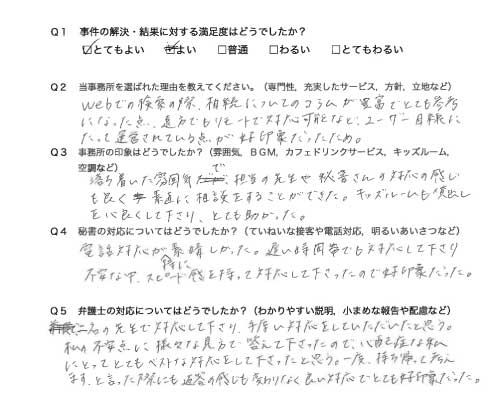 Q1 事件の解決・結果に対する満足度はどうでしたか?
☑とてもよい ☑よい □普通 □わるい □とてもわるい
Q2 当事務所を選ばれた理由を教えてください。(専門性、充実したサービス、方針、立地など)
webでの検索の際、相続についてのコラムが豊富でとても参考
になった点、遠方でもリモートで対応可能など、ユーザー目線に
たって運営されている点が好印象だったため。
Q3 事務所の印象はどうでしたか?(雰囲気、BGM、カフェドリンクサービス、キッズルーム、
空調など)
落ち着いた雰囲気で、担当の先生や秘書さんの対応の感じ
も良く素直に相談をすることができた。キッズルームも貸出し
を心良くして下さり、とても助かった。
Q4 秘書の対応についてはどうでしたか?(ていねいな接客や電話対応、明るいあいさつなど)
電話対応が素晴しかった。遅い時間帯でも対応して下さり
不安な中、特にスピード感を持って対応して下さったので好印象だった。
Q5 弁護士の対応についてはどうでしたか?(わかりやすい説明、小まめな報告や配慮など)
二名の先生で対応して下さり、手厚い対応をしていただいたと思う。
私の不安点に様々な見方で答えて下さったので、心配症な私
にとってとてもベストな対応をして下さったと思う。一度、持ち帰って考え
ます、と言った際にも返答の感じも変わりなく良い対応でとても好印象だった。